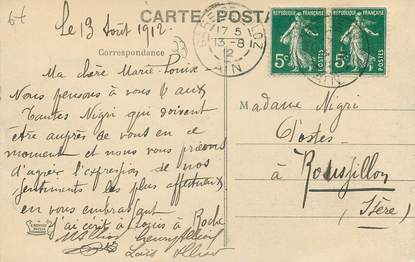 6+
Le 13 Août 1912.
CARTE POSTA
Correspondance
17 5
13-8
12
AIN
REPUBLIQUE FRANÇAISE
5c
POSTES
REPUBLIQUE FRANÇAISE
5c
POSTES
Ma chère Marie-Louise
Nous pensons à vous & aux
Tantes Nigri qui doivent
être auprès de vous en ce
moment et nous vous prions
d'agréer l'expression de nos
sentiments les plus affectueux
en vous embrassant
j'ai écrit à à Roche
Madame Nigri
Postes
à Roussillon
(Isère)